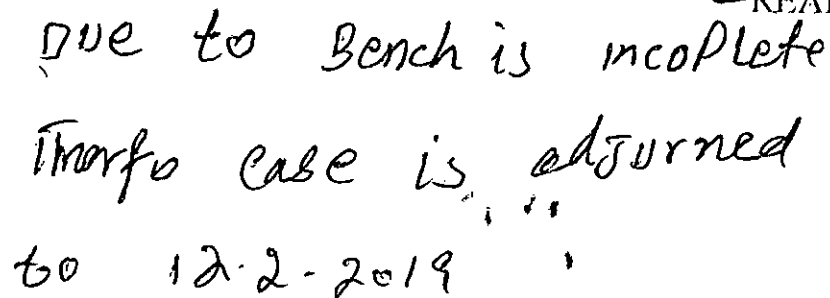 Due to Bench is incoplete
Therfo case is adjurned
to 12.2-2019